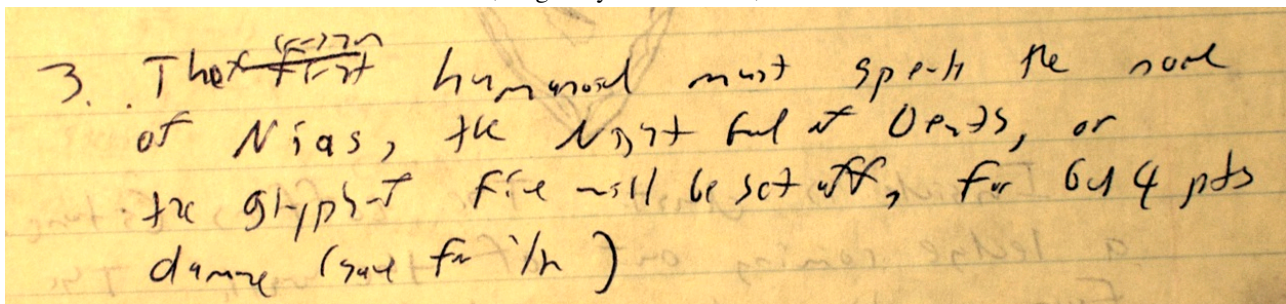 3. That first person humanoid must speak the name
of Nias, the Night God of Death, or
the glyph of fire will be set off, for 6d4 pts
damage (save for 1/2)